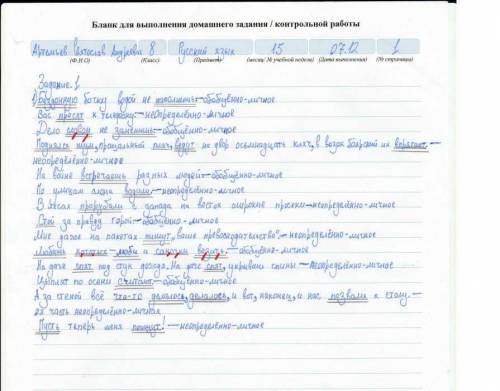 Бланк для выполнения домашнего задания / контрольной работы
Артемьев Святослав Андреевич 8 Русский язык 15 07.12 1
(Ф.И.О) (Класс) (Предмет) (месяц/ № учебной недели) (Дата выполнения) (№ страницы)
Задание.1
1) Бездонную бочку водой не наполнишь-обобщённо-личное
Вас просят к телефону.-неопределённо-личное
Дело словом не заменишь-обобщённо-личное
Поднялся шум, прощальный плач, ведут на двор осьмнадцать кляч, в возок боярский их впрягают-
неопределённо-личное
На войне встречаешь разных людей-обобщённо-личное
По улицам слона водили-неопределённо-личное
В лесах прорубали с запада на восток широкие просеки-неопределённо-личное
Стой за правду горой-обобщённо-личное
Мне даже на пакетах пишут „ваше превосходительство"-неопределённо-личное
Любишь кататься-люби и саночки возить.-обобщённо-личное
На даче спят под стук дождя. На даче спят, укрывши спины.-неопределённо-личное
Цыплят по осени считают-обобщённо-личное
А за стеной всё что-то делалось, делалось, и вот, наконец, и нас позвали к столу.-
2х часть неопределённо-личная
Пусть теперь меня поищут!-неопределённо-личное